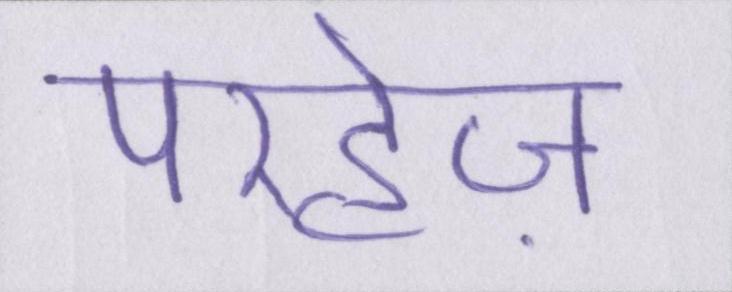 परहेज़